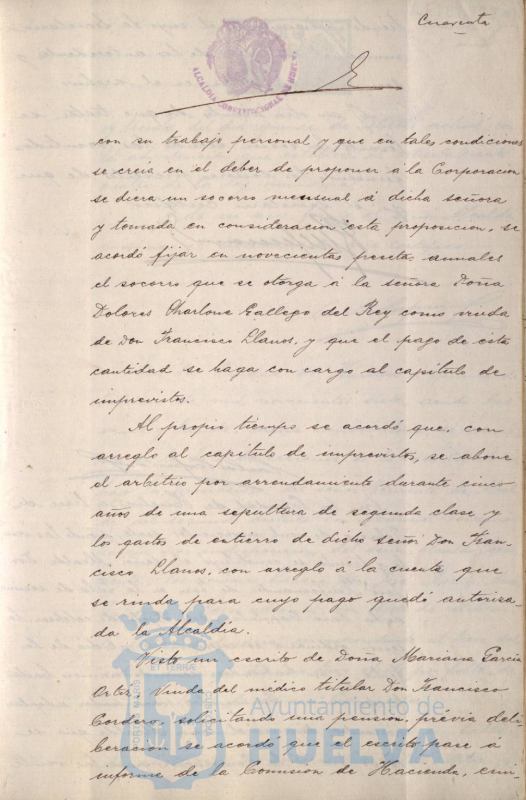 Cuarenta
ALCALDIA CONSTITUCIONAL DE HUELVA
con su trabajo personal y que en tales condiciones
se creia en el deber de proponer á la Corporacion
se diera un socorro mensual á dicha señora
y tomada en consideracion esta proposicion, se
acordó fijar en novecientas pesetas anuales
el socorro que se otorga á la señora Doña
Dolores Charlone Gallego del Rey como viuda
de Don Francisco Llanos, y que el pago de esta
cantidad se haga con cargo al capitulo de
imprevistos.
Al propio tiempo se acordó que, con
arreglo al capitulo de imprevistos, se abone
el arbitrio por arrendamiento durante cinco
años de una sepultura de segunda clase y
los gastos de entierro de dicho señor Don Fran-
cisco Llanos, con arreglo á la cuenta que
se rinda para cuyo pago quedó autoriza-
da la Alcaldía.
Visto un escrito de Doña Mariana Garcia
Ortiz, viuda del médico titular Don Francisco
Cordero, solicitando una pension, prévia deli-
beracion se acordó que el escrito pase á
informe de la Comision de Hacienda, emi-
Ayuntamiento de
HUELVA